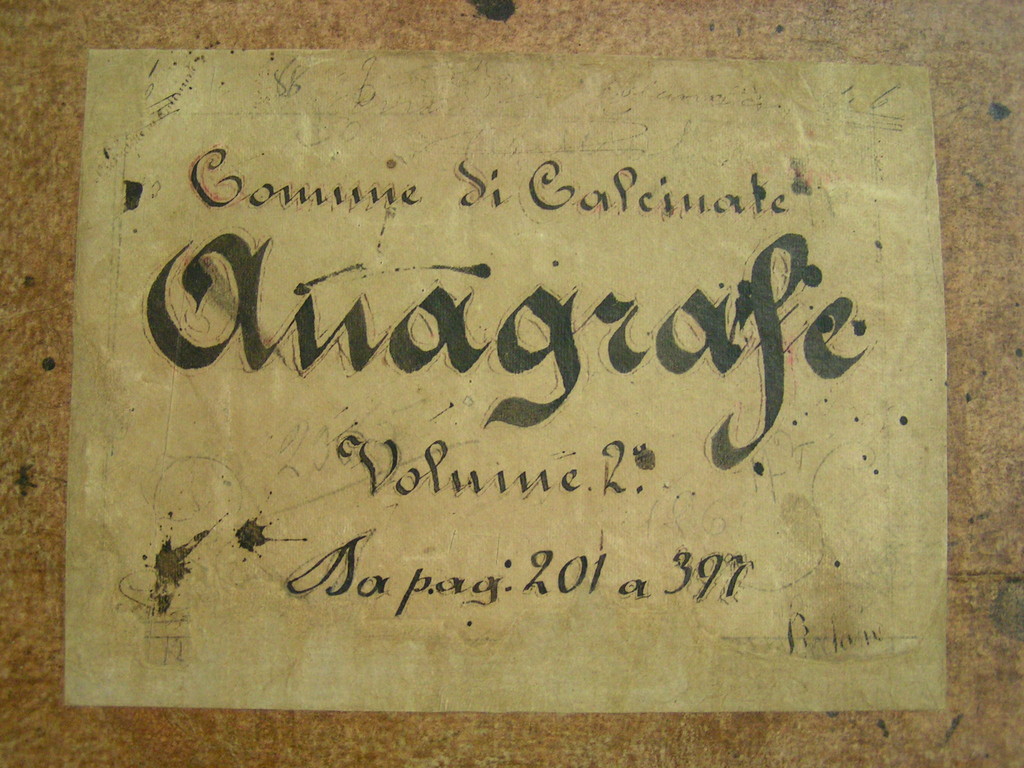 Comune di Calcinate
Anagrafe
Volume 2°
Da pag: 201 a 397